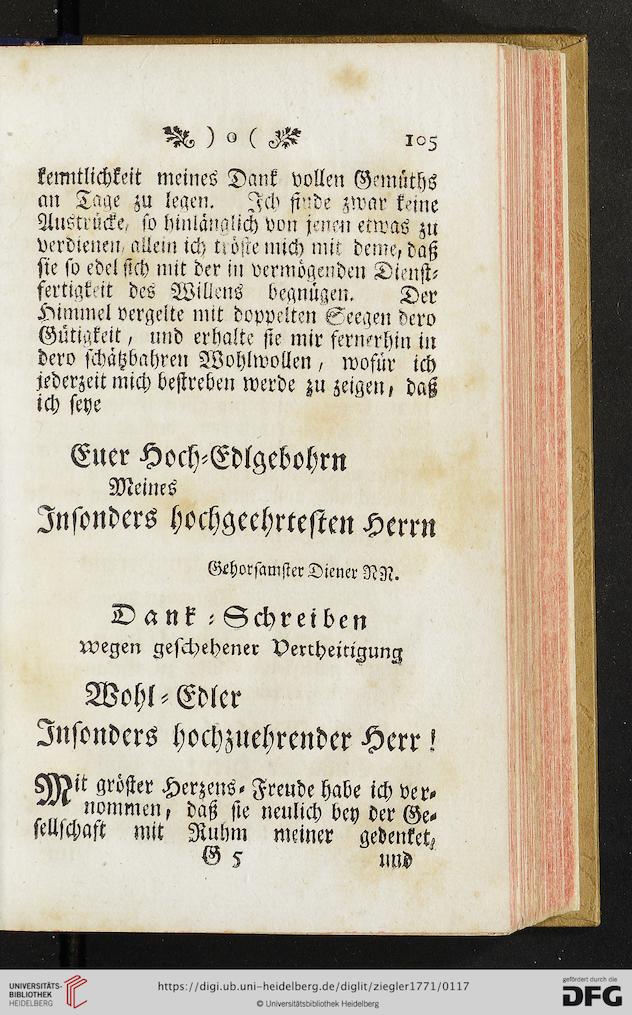 ) o ( 105
kenntlichkeit meines Dank vollen Gemüths
an Tage zu legen. Ich finde zwar keine
Ausdrücke, so hinlänglich von jenen etwas zu
verdienen, allein ich tröste mich mit deme, daß
sie so edel sich mit der in vermögenden Dienst-
fertigkeit des Willens begnügen. Der
Himmel vergelte mit doppelten Seegen dero
Gütigkeit, und erhalte sie mir fernerhin in
dero schätzbahren Wohlwollen, wofür ich
jederzeit mich bestreben werde zu zeigen, daß
ich seye
Euer Hoch-Edlgebohrn
Meines
Insonders hochgeehrtesten Herrn
Gehorsamster Diener NN.
Dank-Schreiben
wegen geschehener Vertheitigung
Wohl-Edler
Insonders hochzuehrender Herr!
Mit gröster Herzens-Freude habe ich ver-
nommen, daß sie neulich bey der Ge-
sellschaft mit Ruhm meiner gedenket,
G 5 und
UNIVERSITÄTS-
BIBLIOTHEK
HEIDELBERG
https://digi.ub.uni-heidelberg.de/diglit/ziegler1771/0117
© Universitätsbibliothek Heidelberg
gefördert durch die
DFG